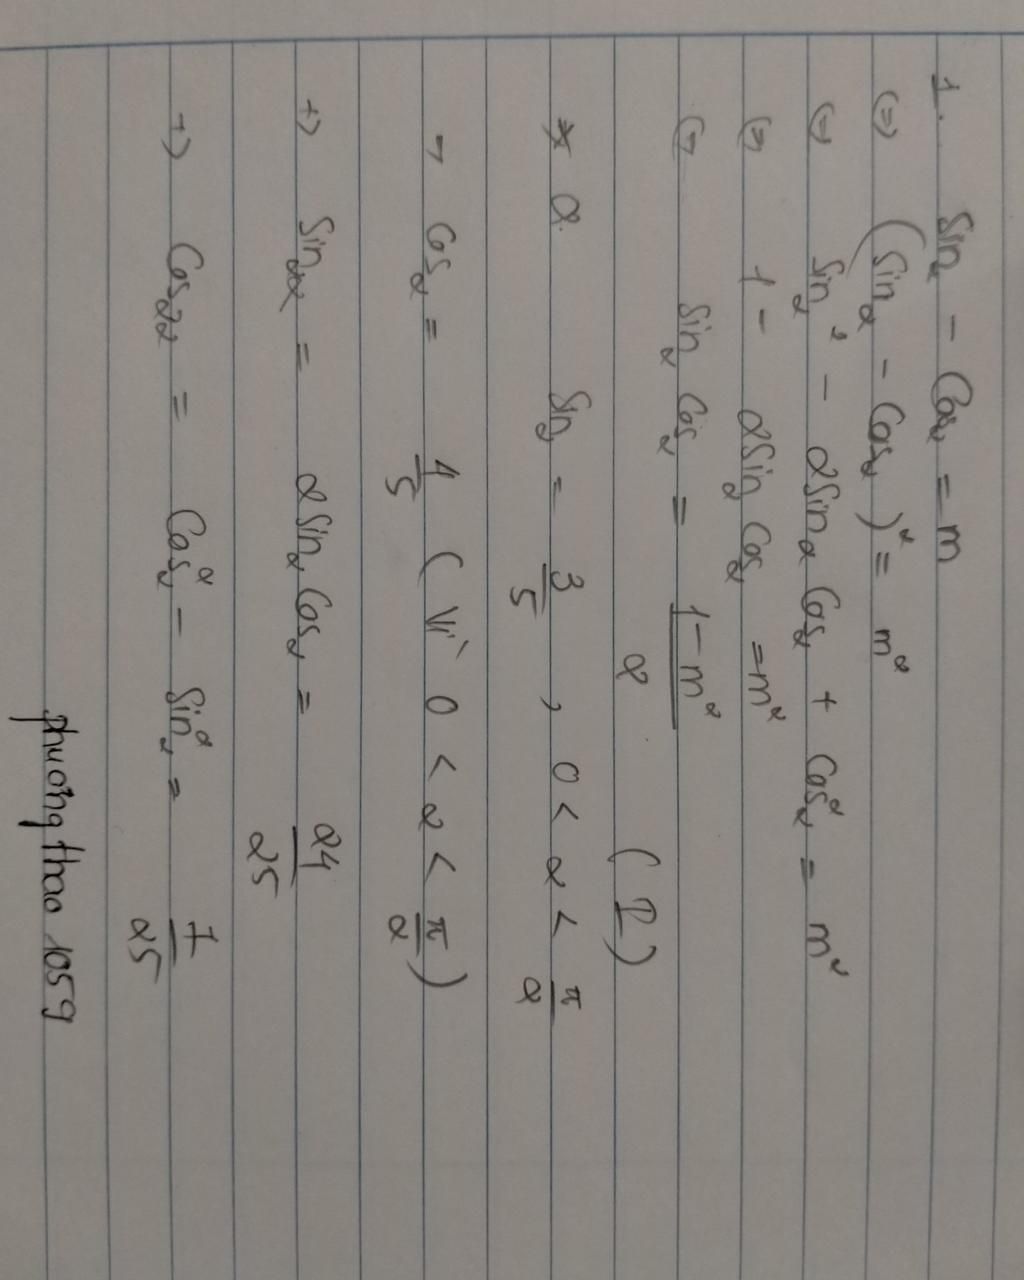 1. Sinα - Cosα = m
(=) (Sinα - Cosα)² = m²
(=) Sinα² - 2Sinα Cosα + Cos²α = m²
(=) 1 - 2Sinα Cosα = m²
(=) Sinα Cosα = (1 - m²)/2 (1)
* 2. Sinα = 3/5 , 0 < α < π/2
→ Cosα = 4/5 (Vì 0 < α < π/2)
+) Sin2α = 2Sinα Cosα = 24/25
+) Cos2α = Cos²α - Sin²α = 7/25
phuongthao 1059